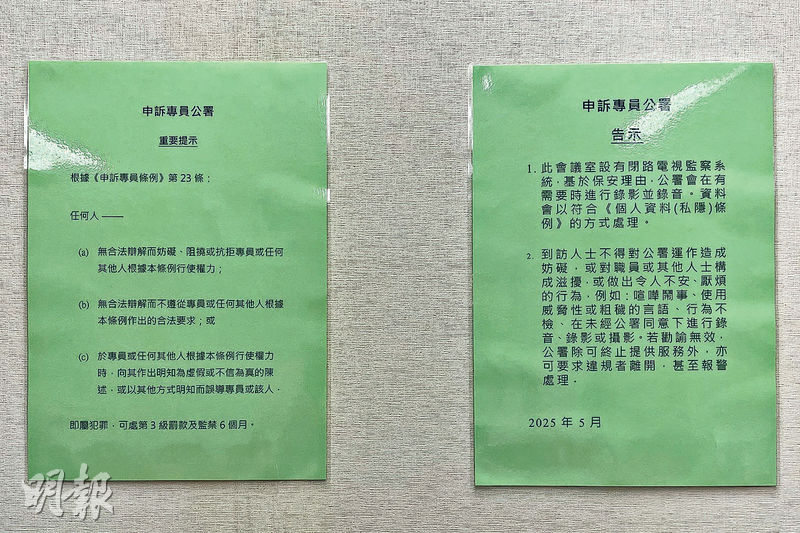 申訴專員公署
重要提示
根據《申訴專員條例》第 23 條：
任何人 ——
(a) 無合法辯解而妨礙、阻撓或抗拒專員或任何
其他人根據本條例行使權力；
(b) 無合法辯解而不遵從專員或任何其他人根據
本條例作出的合法要求；或
(c) 於專員或任何其他人根據本條例行使權力
時，向其作出明知為虛假或不信為真的陳
述，或以其他方式明知而誤導專員或該人，
即屬犯罪，可處第 3 級罰款及監禁 6 個月。
申訴專員公署
告示
1. 此會議室設有閉路電視監察系
統，基於保安理由，公署會在有
需要時進行錄影並錄音。資料
會以符合《個人資料(私隱)條
例》的方式處理。
2. 到訪人士不得對公署運作造成
妨礙，或對職員或其他人士構
成滋擾，或做出令人不安、厭煩
的行為，例如：喧嘩鬧事、使用
威脅性或粗穢的言語、行為不
檢、在未經公署同意下進行錄
音、錄影或攝影。若勸諭無效，
公署除可終止提供服務外，亦
可要求違規者離開，甚至報警
處理。
2025 年 5 月
明報